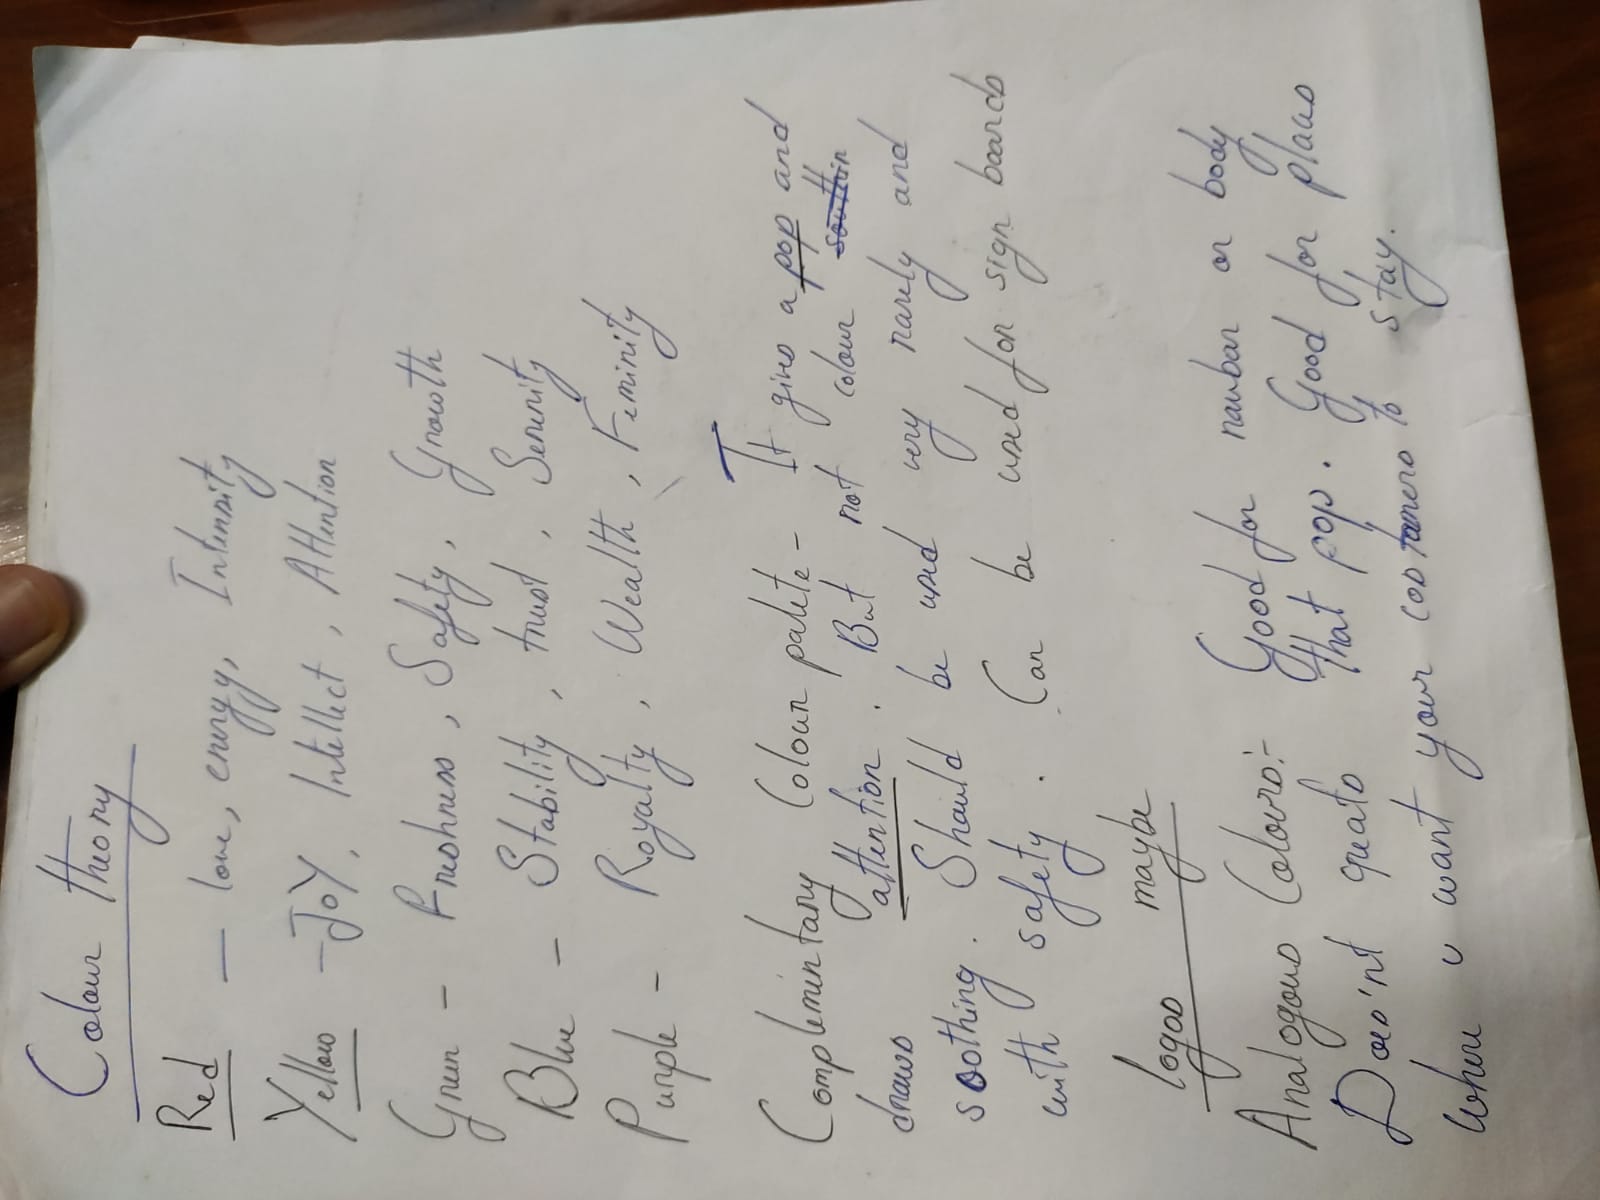 Colour theory
Red — love, energy, Intensity
Yellow - JOY, Intellect, Attention
Green - Freshness, Safety, Growth
Blue - Stability, trust, Serenity
Purple - Royalty, Wealth, Feminity
Complementary Colour palete - It gives a pop and
draws attention. But not colour
soothing. Should be used very rarely and
with safety. Can be used for sign boards
logos maybe
Analogous Colours:- Good for navbar or body
Does'nt create that pop. Good for places
where u want your costomers to stay.